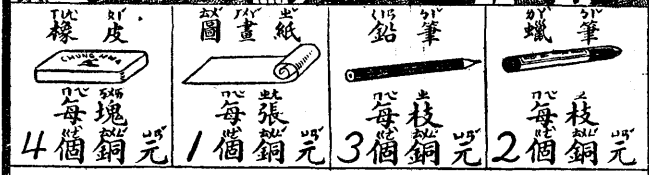 橡皮
CHUNG HWA
每塊
4個銅元
圖畫紙
每張
1個銅元
鉛筆
每枝
3個銅元
蠟筆
每枝
2個銅元